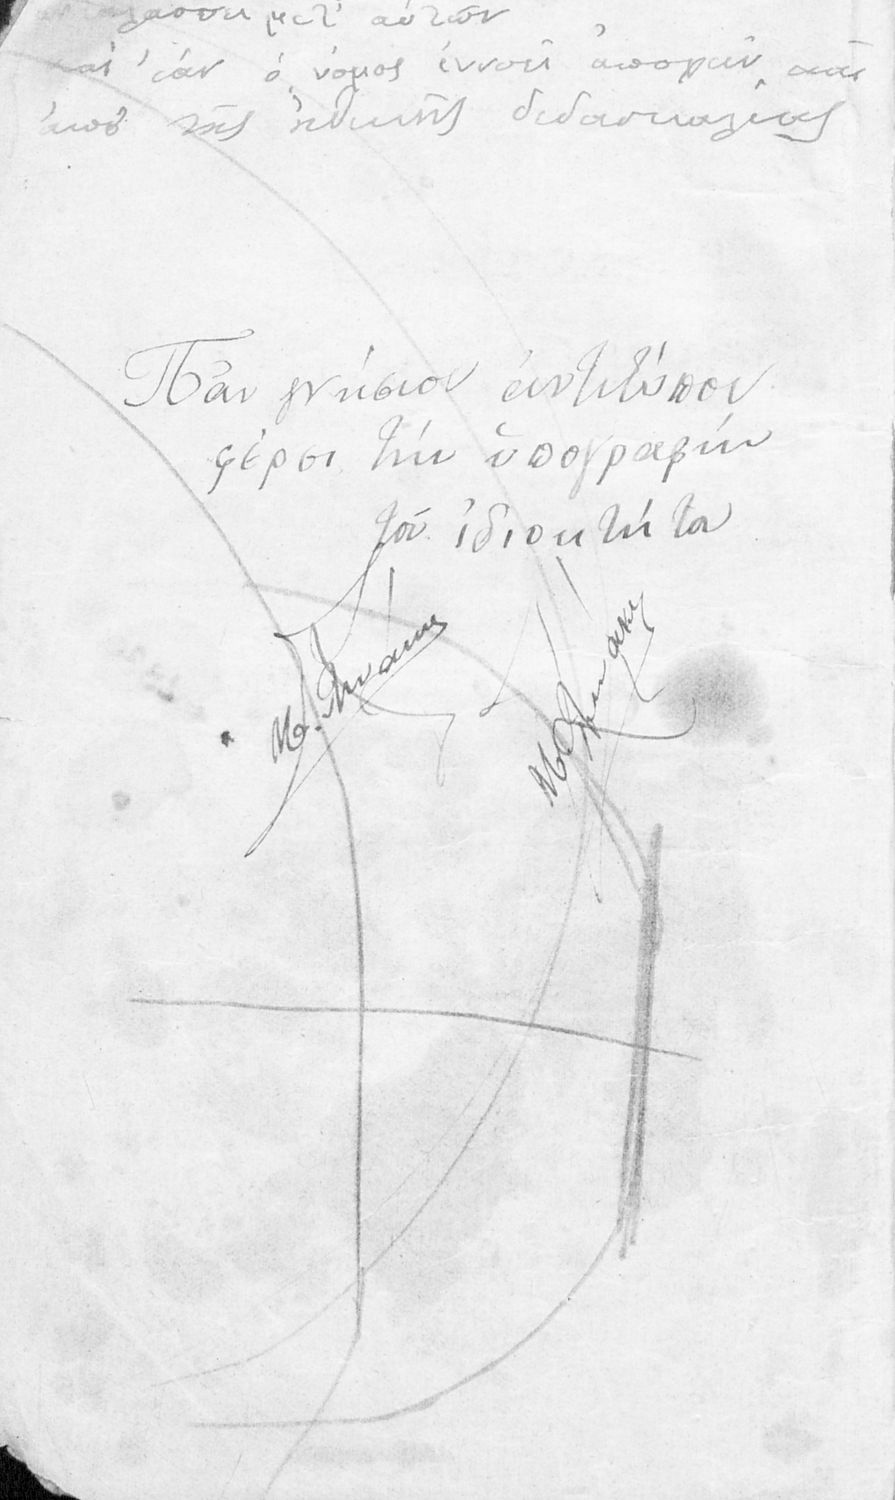 μετ' αὐτῶν
καὶ ἐὰν ὁ νόμος ἐννοεῖ καὶ
ἀπὸ τῆς ἠθικῆς διδασκαλίας
Πᾶν γνήσιον ἀντίτυπον
φέρει τὴν ὑπογραφὴν
τοῦ ἰδιοκτήτου